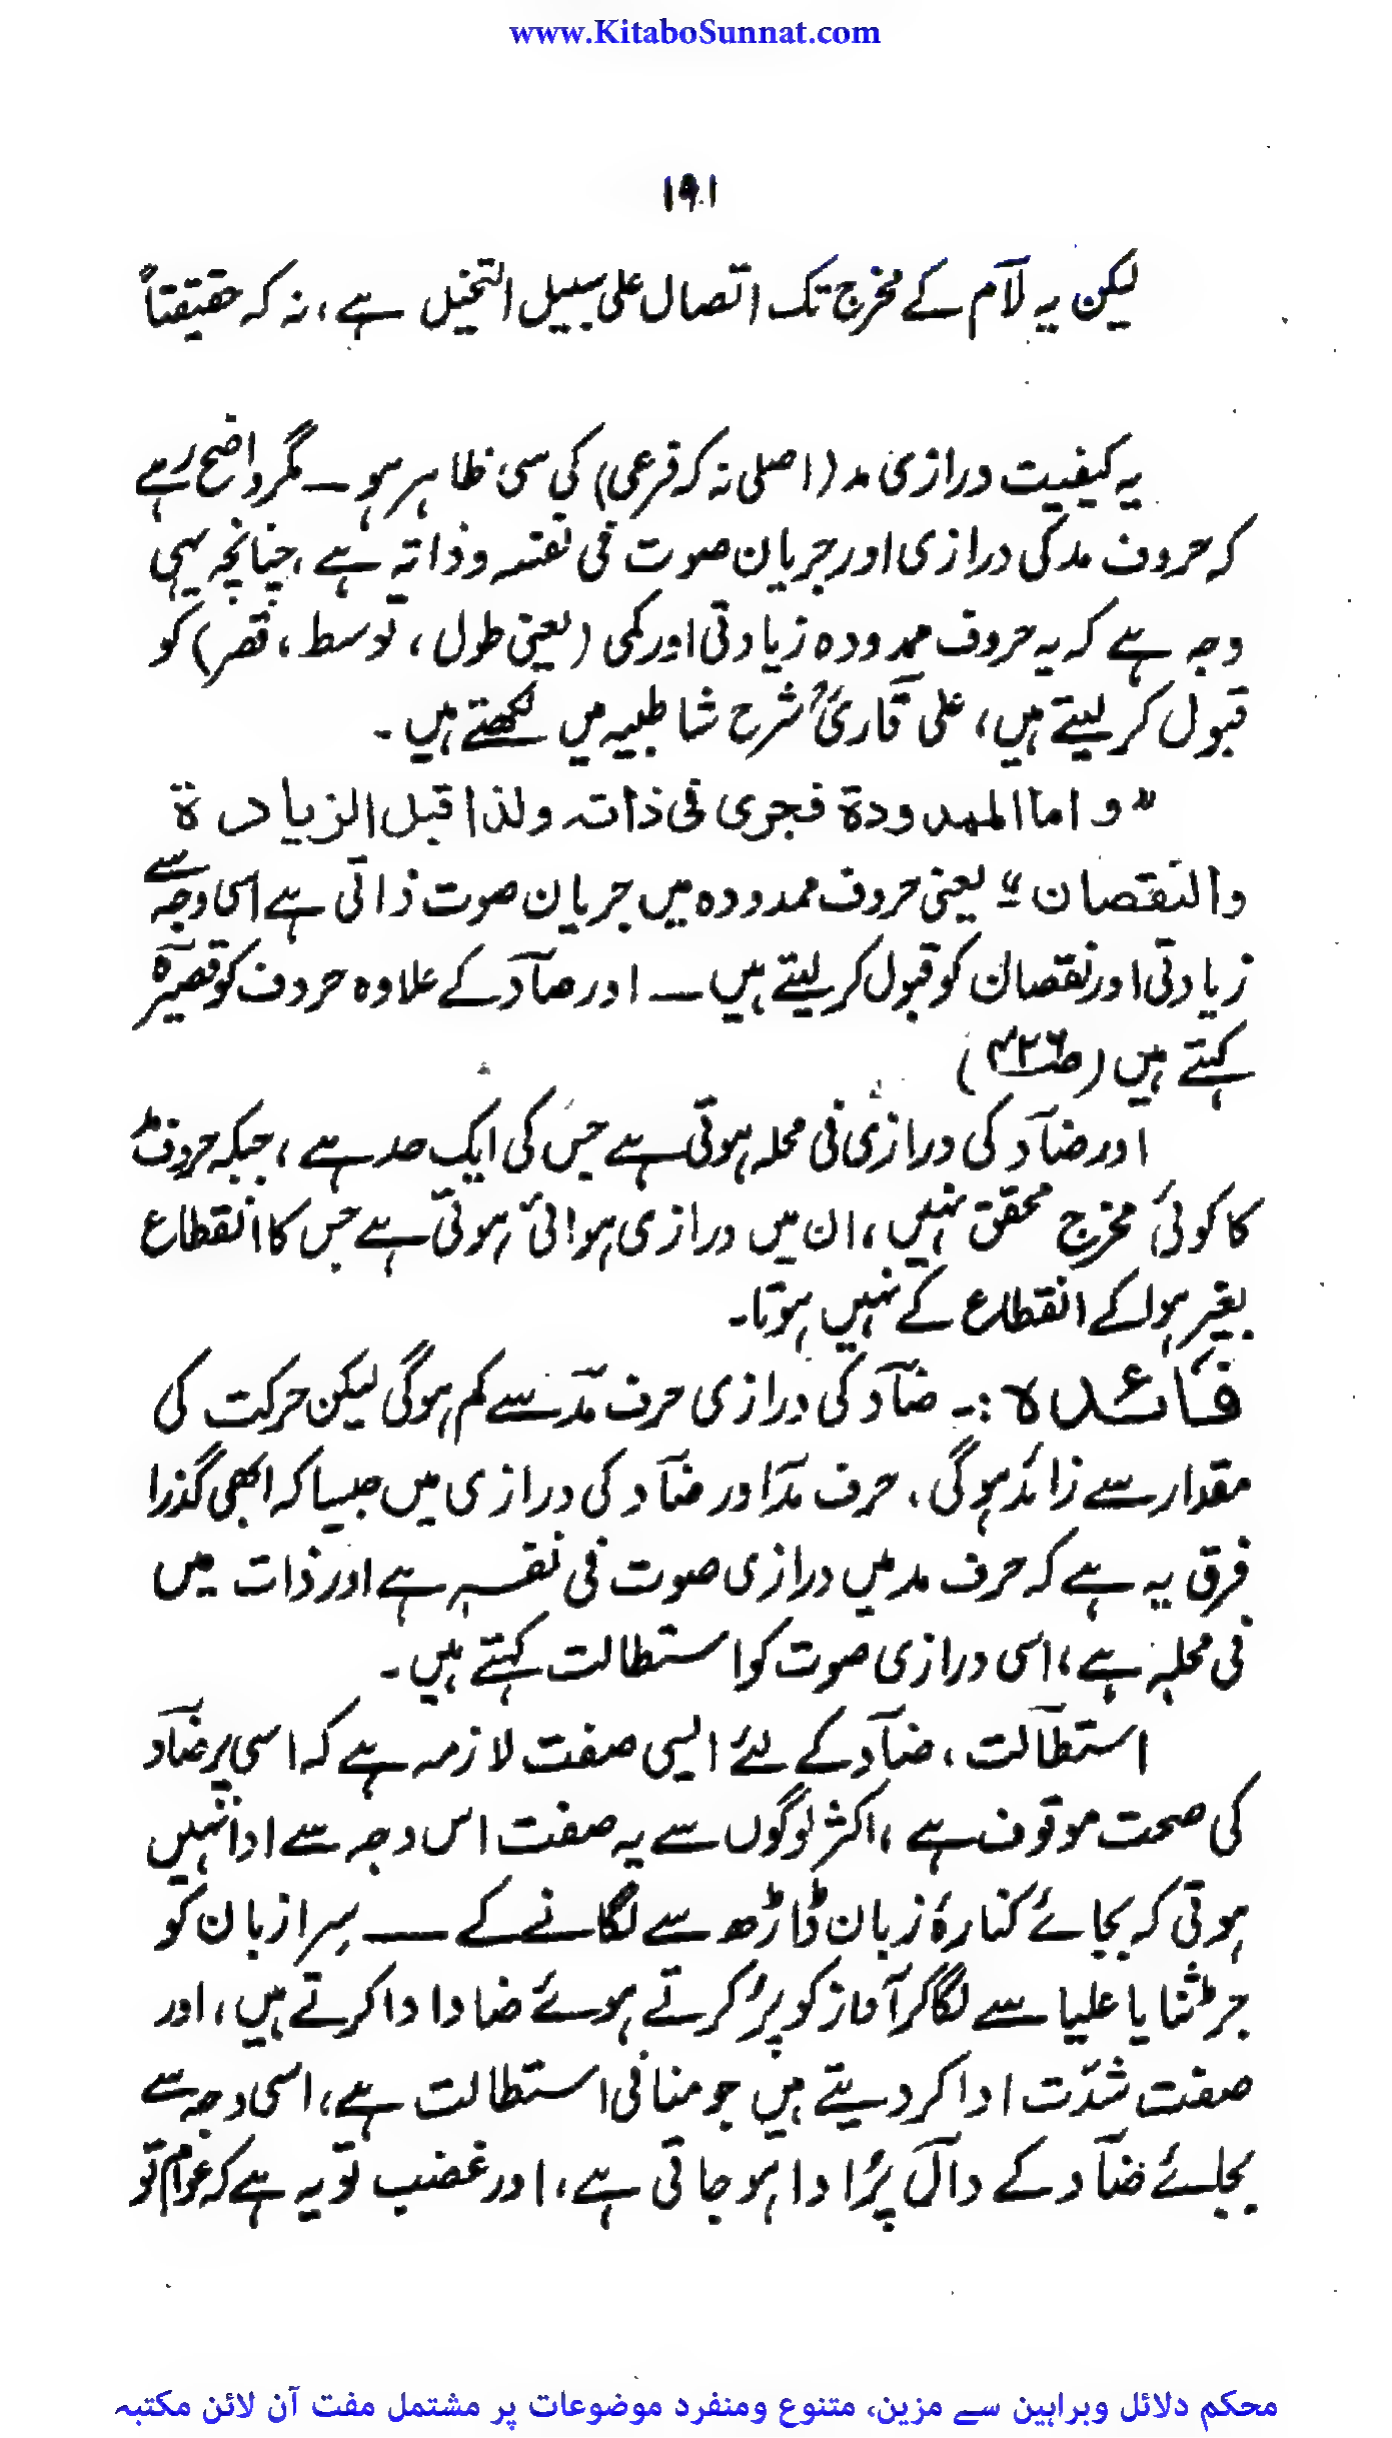 www.KitaboSunnat.com
۱۹۱
لیکن یہ لآم کے مخرج تک اتصال علی سبیل التخیل ہے، نہ کہ حقیقتاً
یہ کیفیت درازیٔ مد (اصلی نہ کہ فرعی) کی سی ظاہر ہو ــ مگر واضح رہے
کہ حروف مد کی درازی اور جریان صوت فی نفسہ وذاتہ ہے، چنانچہ یہی
وجہ ہے کہ یہ حروف ممدودہ زیادتی اور کمی (یعنی طول، توسط، قصر) کو
قبول کر لیتے ہیں، علی قاریؒ شرح شاطبیہ میں لکھتے ہیں۔
”و اما الممدودۃ فجری فی ذاتہ ولذا قبل الزیادۃ
والنقصان“ یعنی حروف ممدودہ میں جریان صوت ذاتی ہے اسی وجہ سے
زیادتی اور نقصان کو قبول کر لیتے ہیں ــ اور صآد کے علاوہ حروف کو قصیرہ
کہتے ہیں (ص۴۲۶)
اور ضآد کی درازی فی محلہ ہوتی ہے جس کی ایک حد ہے، جبکہ حروف مد
کا کوئی مخرج محقق نہیں، ان میں درازی ہوائی ہوتی ہے جس کا انقطاع
بغیر ہوا کے انقطاع کے نہیں ہوتا۔
فائدہ:۔ ضآد کی درازی حرف مدّ سے کم ہوگی لیکن حرکت کی
مقدار سے زائد ہوگی، حرف مدّ اور ضآد کی درازی میں جیسا کہ ابھی گذرا
فرق یہ ہے کہ حرف مد میں درازی صوت فی نفسہٖ ہے اور ذات میں
فی محلہٖ ہے، اسی درازی صوت کو استطالت کہتے ہیں۔
استطآلت، ضآد کے لئے ایسی صفت لازمہ ہے کہ اسی پر ضآد
کی صحت موقوف ہے، اکثر لوگوں سے یہ صفت اس وجہ سے ادا نہیں
ہوتی کہ بجائے کنارۂ زبان ڈاڑھ سے لگانے کے ــ سِرا زبان کو
جڑ ثنایا علیا سے لگا کر آواز کو پُر کرتے ہوئے ضاد ادا کرتے ہیں، اور
صفت شدّت ادا کر دیتے ہیں جو منافی استطالت ہے، اسی وجہ سے
بجائے ضآد کے دآل پُر ادا ہو جاتی ہے، اور غضب تو یہ ہے کہ عوام تو
محکم دلائل وبراہین سے مزین، متنوع ومنفرد موضوعات پر مشتمل مفت آن لائن مکتبہ